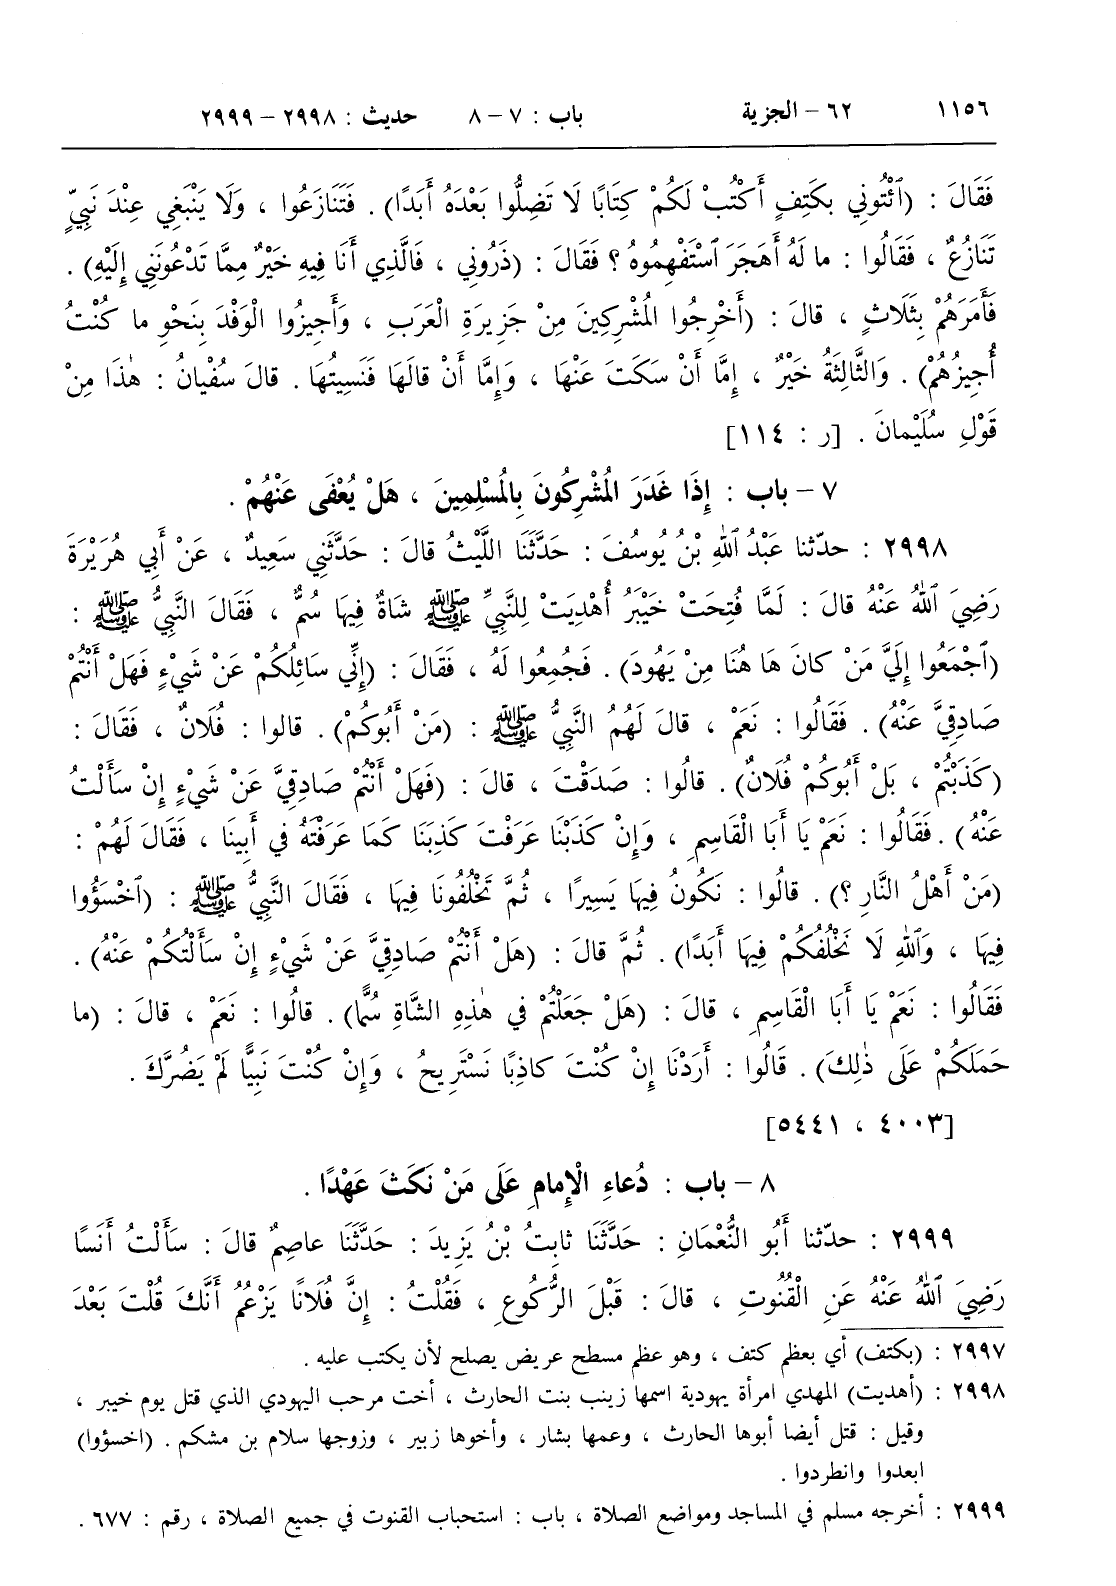 ١١٥٦ ٦٢ – الجزية باب : ٧ – ٨ حديث : ٢٩٩٨ – ٢٩٩٩
فَقَالَ : (ٱئْتُونِي بِكَتِفٍ أَكْتُبْ لَكُمْ كِتَابًا لَا تَضِلُّوا بَعْدَهُ أَبَدًا) . فَتَنَازَعُوا ، وَلَا يَنْبَغِي عِنْدَ نَبِيٍّ
تَنَازُعٌ ، فَقَالُوا : ما لَهُ أَهَجَرَ ٱسْتَفْهِمُوهُ ؟ فَقَالَ : (ذَرُونِي ، فَالَّذِي أَنَا فِيهِ خَيْرٌ مِمَّا تَدْعُونَنِي إِلَيْهِ) .
فَأَمَرَهُمْ بِثَلَاثٍ ، قالَ : (أَخْرِجُوا المُشْرِكِينَ مِنْ جَزِيرَةِ الْعَرَبِ ، وَأَجِيزُوا الْوَفْدَ بِنَحْوِ ما كُنْتُ
أُجِيزُهُمْ) . وَالثَّالِثَةُ خَيْرٌ ، إِمَّا أَنْ سَكَتَ عَنْهَا ، وَإِمَّا أَنْ قالَهَا فَنَسِيتُهَا . قالَ سُفْيانُ : هٰذَا مِنْ
قَوْلِ سُلَيْمانَ . [ر : ١١٤]
٧ – باب : إِذَا غَدَرَ المُشْرِكُونَ بِالمُسْلِمِينَ ، هَلْ يُعْفَى عَنْهُمْ .
٢٩٩٨ : حدّثنا عَبْدُ ٱللهِ بْنُ يُوسُفَ : حَدَّثَنَا اللَّيْثُ قالَ : حَدَّثَنِي سَعِيدٌ ، عَنْ أَبِي هُرَيْرَةَ
رَضِيَ ٱللهُ عَنْهُ قالَ : لَمَّا فُتِحَتْ خَيْبَرُ أُهْدِيَتْ لِلنَّبِيِّ ﷺ شَاةٌ فِيهَا سُمٌّ ، فَقَالَ النَّبِيُّ ﷺ :
(ٱجْمَعُوا إِلَيَّ مَنْ كانَ هَا هُنَا مِنْ يَهُودَ) . فَجُمِعُوا لَهُ ، فَقَالَ : (إِنِّي سَائِلُكُمْ عَنْ شَيْءٍ فَهَلْ أَنْتُمْ
صَادِقِيَّ عَنْهُ) . فَقَالُوا : نَعَمْ ، قالَ لَهُمُ النَّبِيُّ ﷺ : (مَنْ أَبُوكُمْ) . قالوا : فُلَانٌ ، فَقَالَ :
(كَذَبْتُمْ ، بَلْ أَبُوكُمْ فُلَانٌ) . قالُوا : صَدَقْتَ ، قالَ : (فَهَلْ أَنْتُمْ صَادِقِيَّ عَنْ شَيْءٍ إِنْ سَأَلْتُ
عَنْهُ) . فَقَالُوا : نَعَمْ يَا أَبَا الْقَاسِمِ ، وَإِنْ كَذَبْنَا عَرَفْتَ كَذِبَنَا كَمَا عَرَفْتَهُ فِي أَبِينَا ، فَقَالَ لَهُمْ :
(مَنْ أَهْلُ النَّارِ ؟) . قالُوا : نَكُونُ فِيهَا يَسِيرًا ، ثُمَّ تَخْلُفُونَا فِيهَا ، فَقَالَ النَّبِيُّ ﷺ : (ٱخْسَؤُوا
فِيهَا ، وَٱللهِ لَا نَخْلُفُكُمْ فِيهَا أَبَدًا) . ثُمَّ قالَ : (هَلْ أَنْتُمْ صَادِقِيَّ عَنْ شَيْءٍ إِنْ سَأَلْتُكُمْ عَنْهُ) .
فَقَالُوا : نَعَمْ يَا أَبَا الْقَاسِمِ ، قالَ : (هَلْ جَعَلْتُمْ فِي هٰذِهِ الشَّاةِ سُمًّا) . قالُوا : نَعَمْ ، قالَ : (ما
حَمَلَكُمْ عَلَى ذٰلِكَ) . قَالُوا : أَرَدْنَا إِنْ كُنْتَ كاذِبًا نَسْتَرِيحُ ، وَإِنْ كُنْتَ نَبِيًّا لَمْ يَضُرَّكَ .
[٤٠٠٣ ، ٥٤٤١]
٨ – باب : دُعاءِ الْإِمامِ عَلَى مَنْ نَكَثَ عَهْدًا .
٢٩٩٩ : حدّثنا أَبُو النُّعْمَانِ : حَدَّثَنَا ثابِتُ بْنُ يَزِيدَ : حَدَّثَنَا عاصِمٌ قالَ : سَأَلْتُ أَنَسًا
رَضِيَ ٱللهُ عَنْهُ عَنِ الْقُنُوتِ ، قالَ : قَبْلَ الرُّكُوعِ ، فَقُلْتُ : إِنَّ فُلَانًا يَزْعُمُ أَنَّكَ قُلْتَ بَعْدَ
٢٩٩٧ : (بكتف) أي بعظم كتف ، وهو عظم مسطح عريض يصلح لأن يكتب عليه .
٢٩٩٨ : (أهديت) المهدي امرأة يهودية اسمها زينب بنت الحارث ، أخت مرحب اليهودي الذي قتل يوم خيبر ،
وقيل : قتل أيضا أبوها الحارث ، وعمها بشار ، وأخوها زبير ، وزوجها سلام بن مشكم . (اخسؤوا)
ابعدوا وانطردوا .
٢٩٩٩ : أخرجه مسلم في المساجد ومواضع الصلاة ، باب : استحباب القنوت في جميع الصلاة ، رقم : ٦٧٧ .